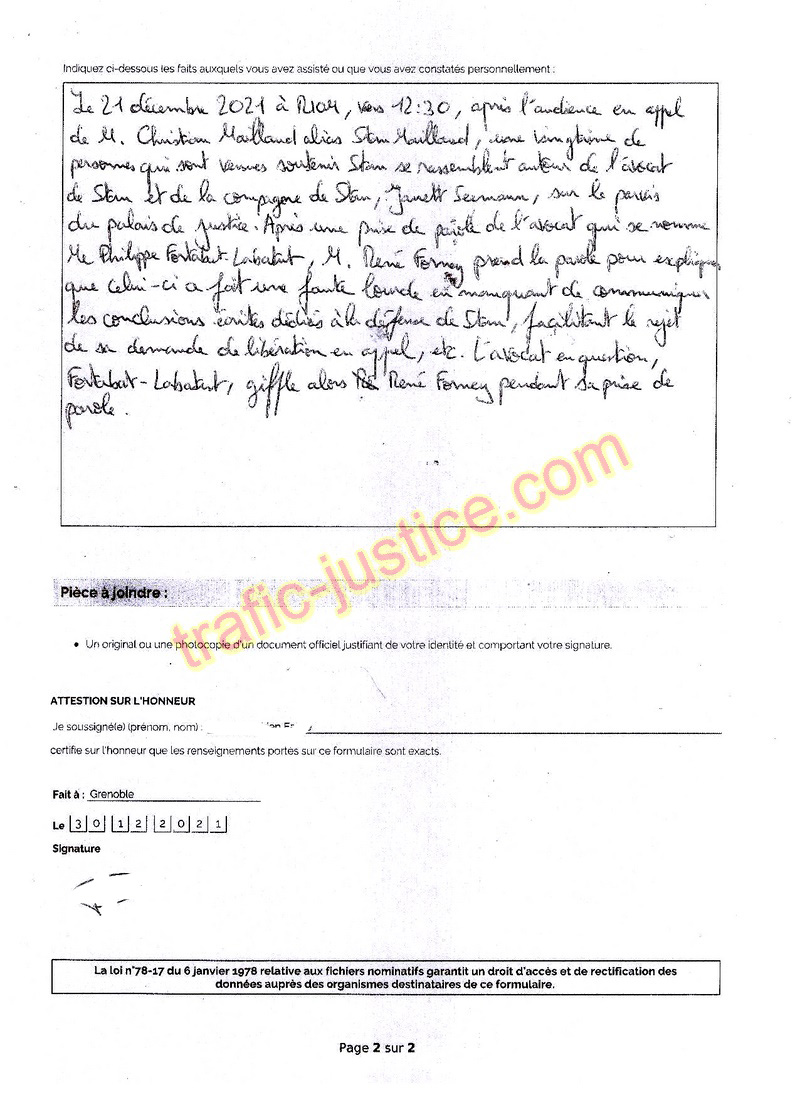 Indiquez ci-dessous les faits auxquels vous avez assisté ou que vous avez constatés personnellement :
Le 21 décembre 2021 à RIOM, vers 12:30, après l'audience en appel
de M. Christian Maillaud alias Stan Maillaud, une vingtaine de
personnes qui sont venues soutenir Stan se rassemblent autour de l'avocat
de Stan et de la compagne de Stan, Janett Seemann, sur le parvis
du palais de justice. Après une prise de parole de l'avocat qui se nomme
Me Philippe Fortabat-Labatut, M. René Forney prend la parole pour expliquer
que celui-ci a fait une faute lourde en manquant de communiquer
les conclusions écrites dédiés à la défense de Stan, facilitant le rejet
de sa demande de libération en appel, etc. L'avocat en question,
Fortabat-Labatut, giffle alors René Forney pendant sa prise de
parole.
trafic-justice.com
Pièce à joindre :
• Un original ou une photocopie d'un document officiel justifiant de votre identité et comportant votre signature.
ATTESTION SUR L'HONNEUR
Je soussigné(e) (prénom, nom) :
certifie sur l'honneur que les renseignements portés sur ce formulaire sont exacts.
Fait à : Grenoble
Le 3 0 1 2 2 0 2 1
Signature
La loi n°78-17 du 6 janvier 1978 relative aux fichiers nominatifs garantit un droit d'accès et de rectification des
données auprès des organismes destinataires de ce formulaire.
Page 2 sur 2